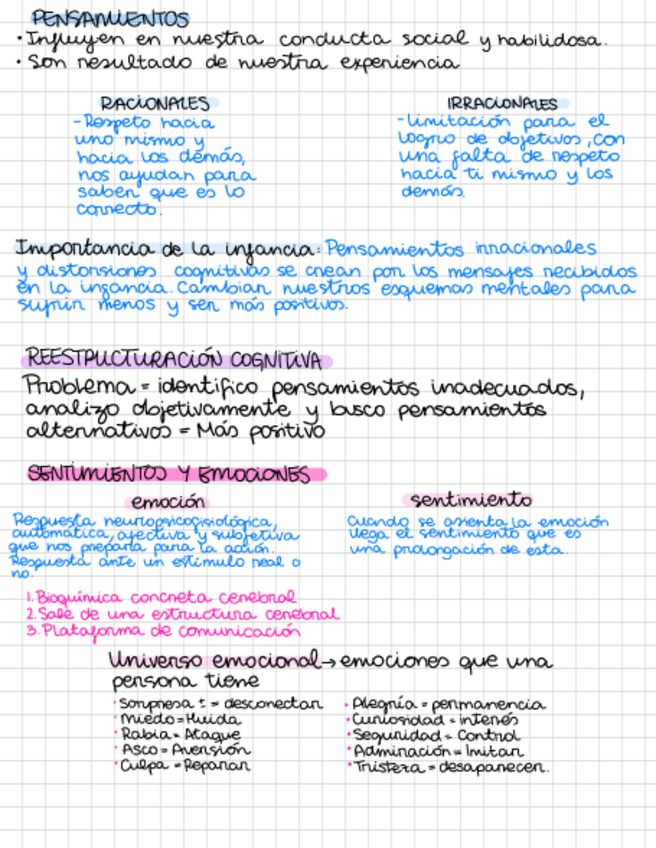 PENSAMIENTOS
· Influyen en nuestra conducta social y habilidosa.
· Son resultado de nuestra experiencia
RACIONALES
- Respeto hacia
uno mismo y
hacia los demás,
nos ayudan para
saber que es lo
correcto.
IRRACIONALES
- Limitación para el
logro de objetivos, con
una falta de respeto
hacia ti mismo y los
demás.
Importancia de la infancia: Pensamientos irracionales
y distorsiones cognitivas se crean por los mensajes recibidos
en la infancia. Cambiar nuestros esquemas mentales para
sufrir menos y ser más positivos.
REESTRUCTURACIÓN COGNITIVA
Problema = identifico pensamientos inadecuados,
analizo objetivamente y busco pensamientos
alternativos = Más positivo
SENTIMIENTOS Y EMOCIONES
emoción
Respuesta neuropsicofisiológica,
automática, afectiva y subjetiva
que nos prepara para la acción.
Respuesta ante un estímulo real o
no.
sentimiento
Cuando se asienta la emoción
llega el sentimiento que es
una prolongación de esta.
1. Bioquímica concreta cerebral
2. Sale de una estructura cerebral
3. Plataforma de comunicación
Universo emocional → emociones que una
persona tiene
· Sorpresa ± = desconectar
· Miedo = Huida
· Rabia = Ataque
· Asco = Aversión
· Culpa = Reparar
· Alegría = permanencia
· Curiosidad = interés
· Seguridad = Control
· Admiración = Imitar
· Tristeza = desaparecer.